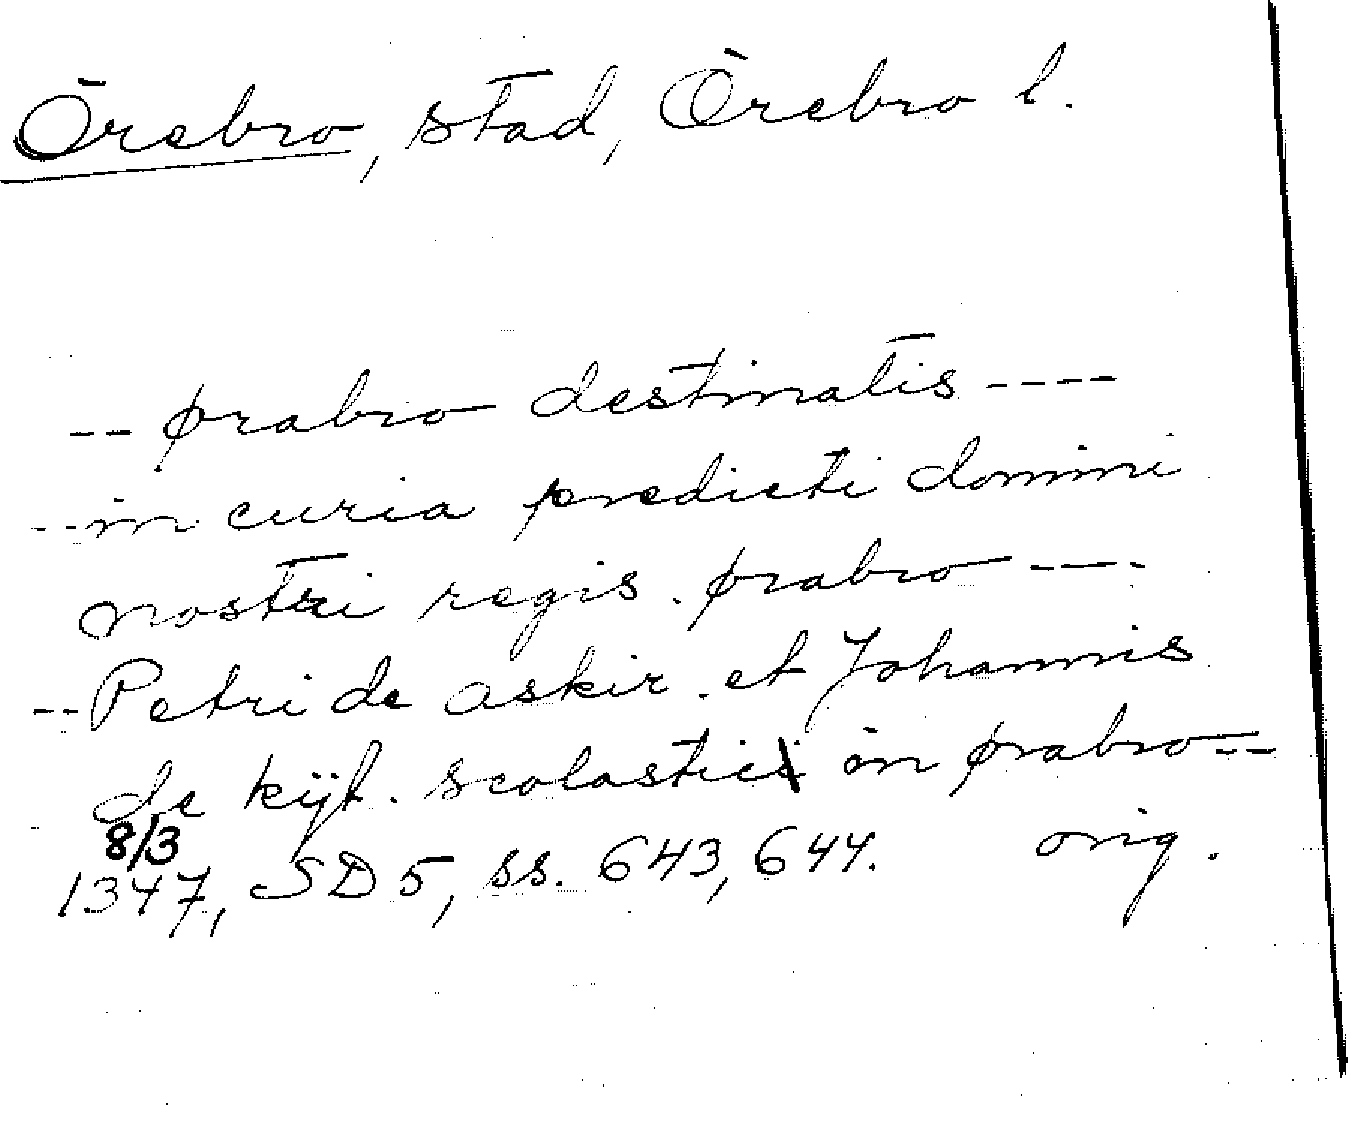 Örebro, stad, Örebro l.
-- ørabro destinatis ----
-- in curia predicti domini
nostri regis . ørabro ----
-- Petri de askir . et Johannis
de kijl . scolastici in ørabro --
8/3
1347, SD 5, ss. 643, 644. orig.